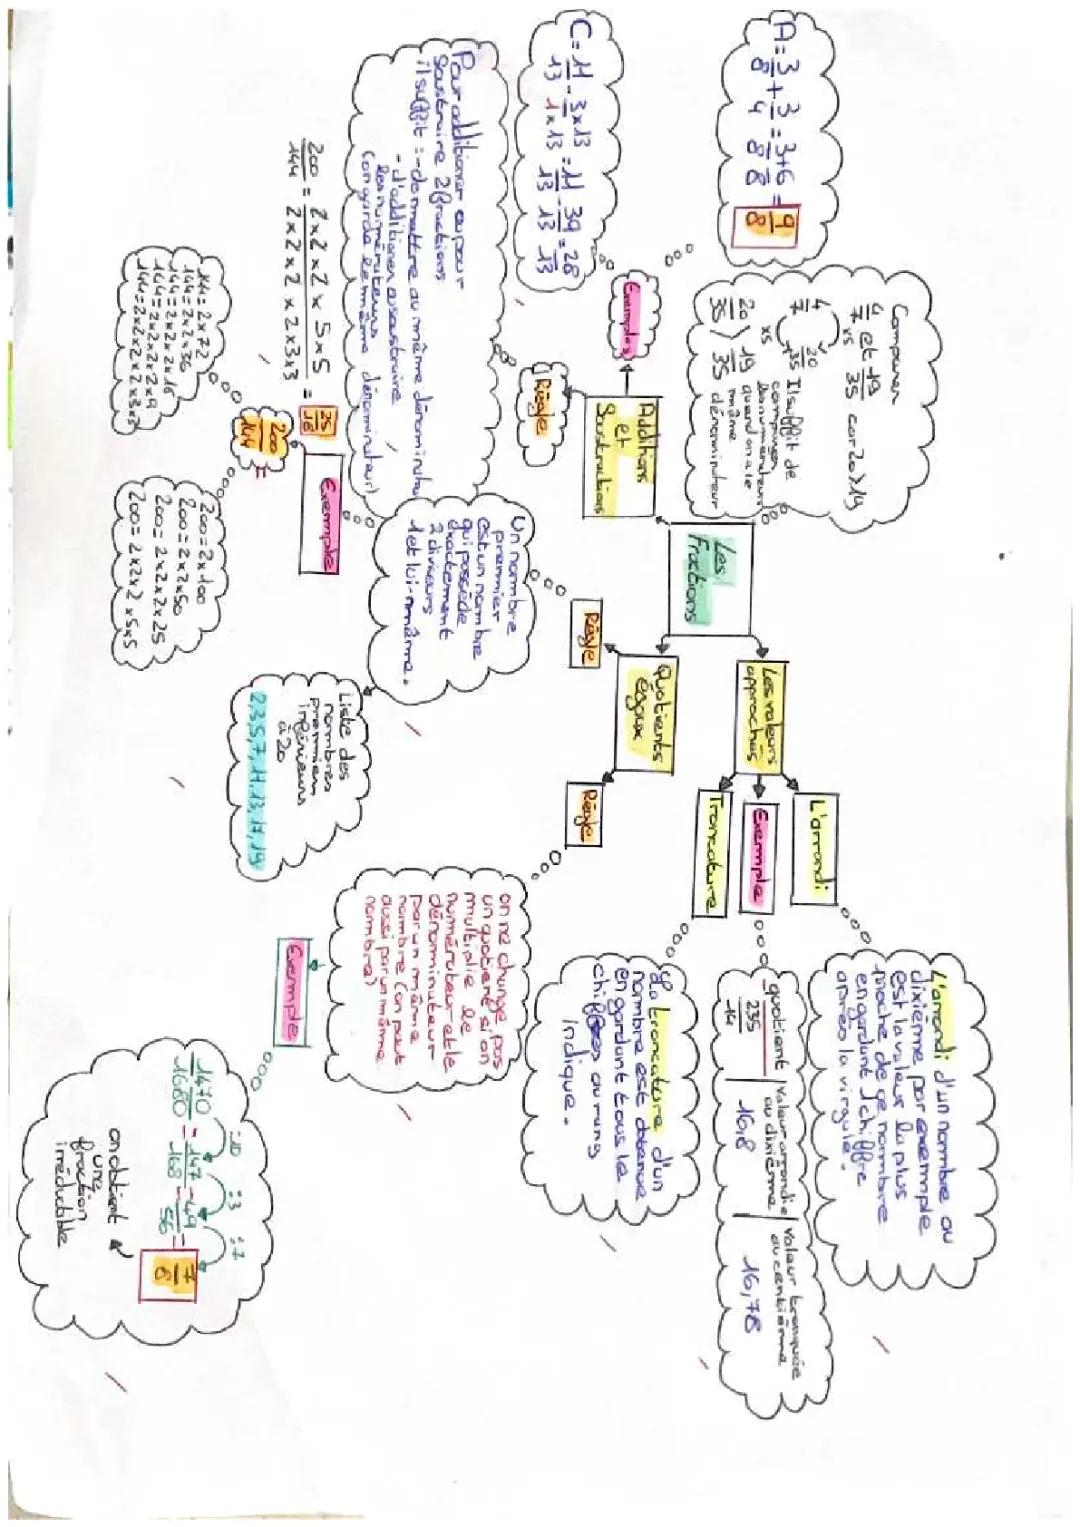 Les
Fractions
Additions
et
Soustractions
Exemples
A = 3/8 + 3/4 = 3+6/8 = 9/8
C = 11/13 - 3x13/1x13 = 11/13 - 39/13 = 28/13
Règle
Pour additionner ou pour
soustraire 2 fractions
il suffit : - de mettre au même dénominateur
- d'additionner ou soustraire
les numérateurs
(on garde le même dénominateur)
Comparer
4/7 et 19/35 car 20 > 19
x5
4/7 20/35
x5
20/35 > 19/35
Il suffit de
comparer
les numérateurs
quand on a le
même
dénominateur
Les valeurs
approchés
L'arrondi
L'arrondi d'un nombre au
dixième par exemple
est la valeur la plus
proche de ce nombre
en gardant 1 chiffre
après la virgule.
Exemple
quotient | valeur arrondie au dixième | valeur tronquée au centième
235/14 | 16,8 | 16,78
Troncature
La troncature d'un
nombre est obtenue
en gardant tous le
chiffres au rang
indiqué.
Quotients
égaux
Règle
Un nombre
premier
est un nombre
qui possède
exactement
2 diviseurs
1 et lui-même.
Liste des
nombres
premiers
inférieurs
à 20
2,3,5,7,11,13,17,19
Exemple
200/144
200/144 = 2x2x2x5x5/2x2x2x2x3x3 = 25/18
144 = 2x72
144 = 2x2x36
144 = 2x2x2x18
144 = 2x2x2x2x9
144 = 2x2x2x2x3x3
200 = 2x100
200 = 2x2x50
200 = 2x2x2x25
200 = 2x2x2x5x5
Règle
on ne change pas
un quotient si on
multiplie le
numérateur et le
dénominateur
par un même
nombre (on peut
aussi par un même
nombre)
Exemple
:10 :3 :7
1470/1680 = 147/168 = 49/56 = 7/8
on obtient
une
fraction
irréductible